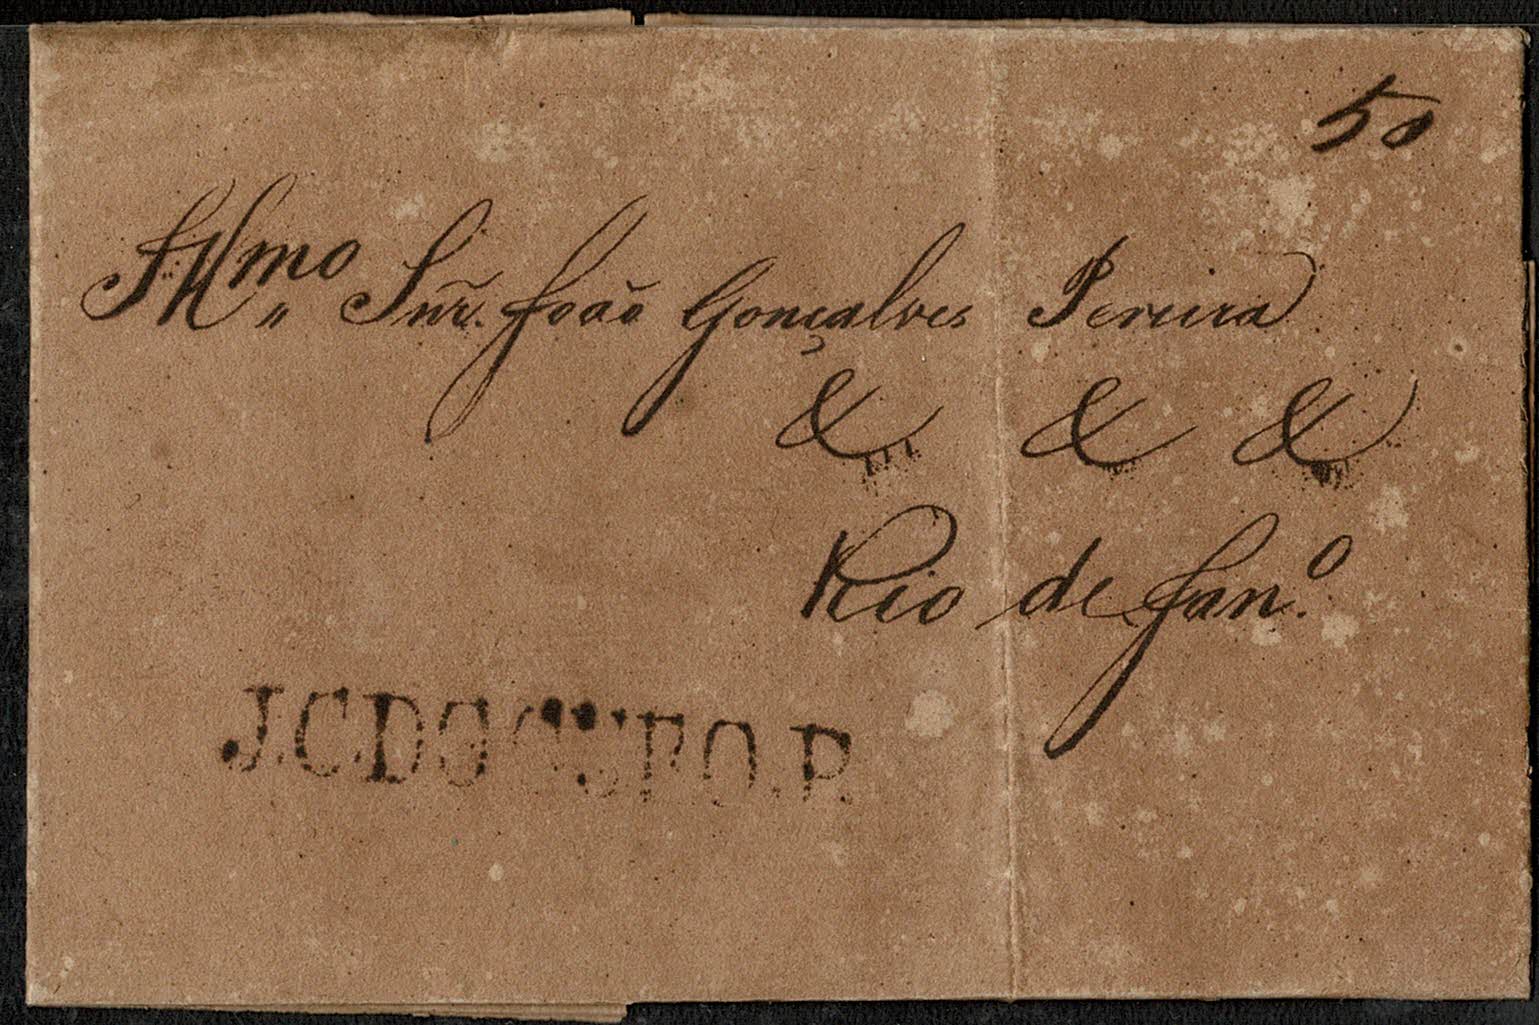 50
Illmo Snr. João Gonçalves Pereira
& & &
Rio de Jan.º